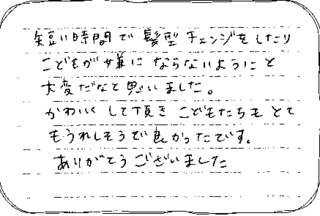 短い時間で髪型チェンジをしたり
こどもが嫌にならないようにと
大変だなと思いました。
かわいくして頂きこどもたちもとて
もうれしそうで良かったです。
ありがとうございました